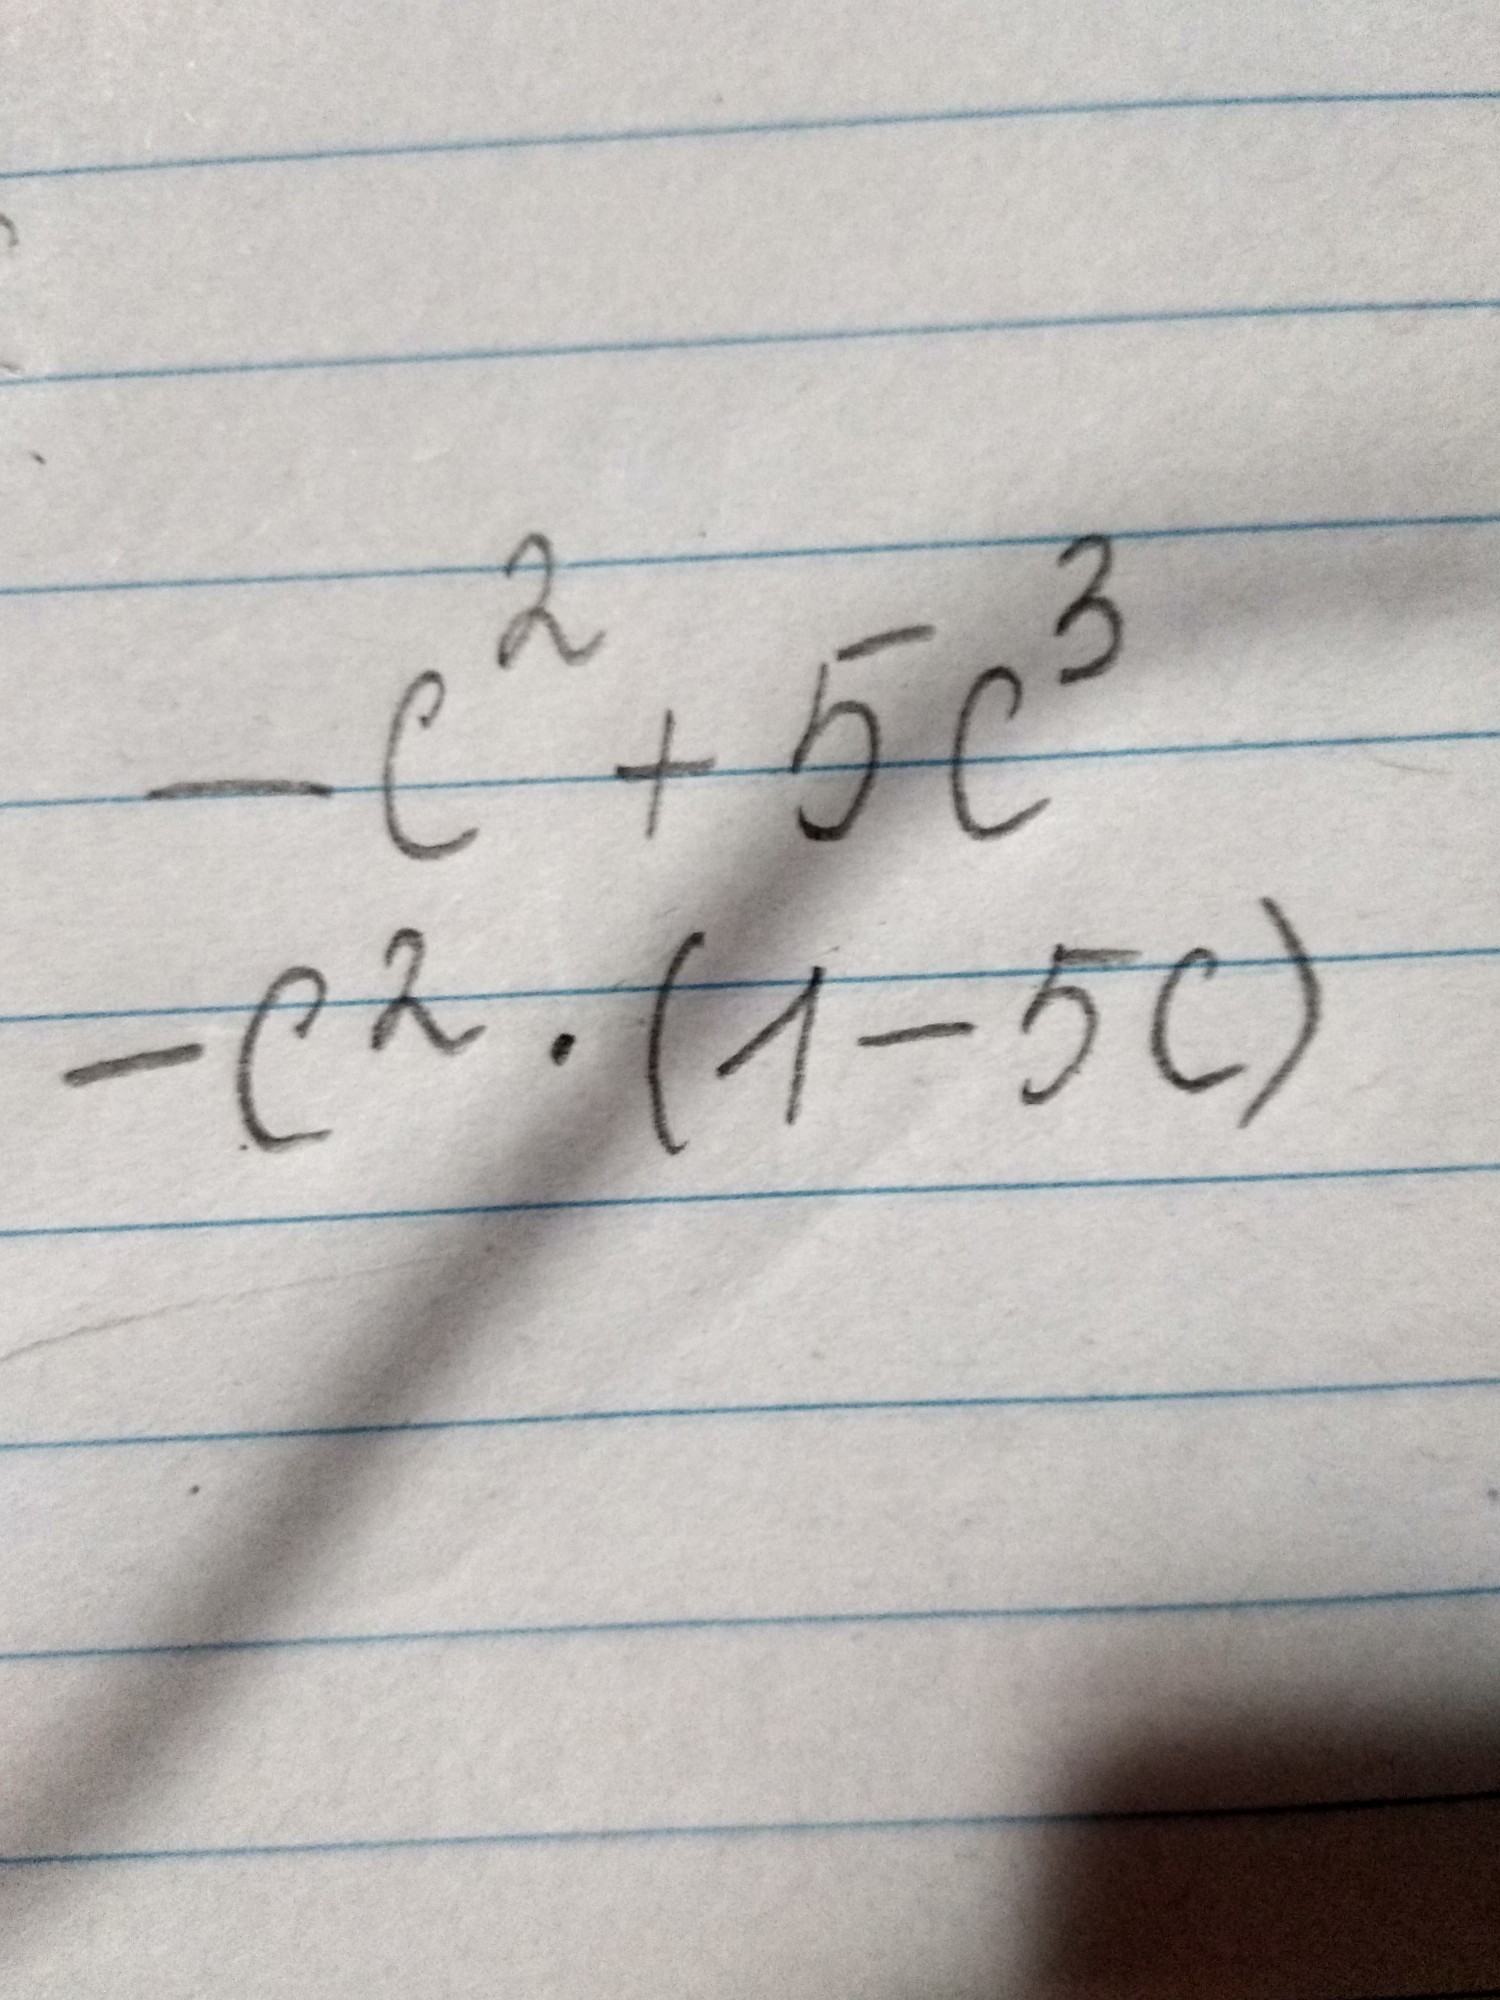 -c² + 5c³
-c² · (1 - 5c)